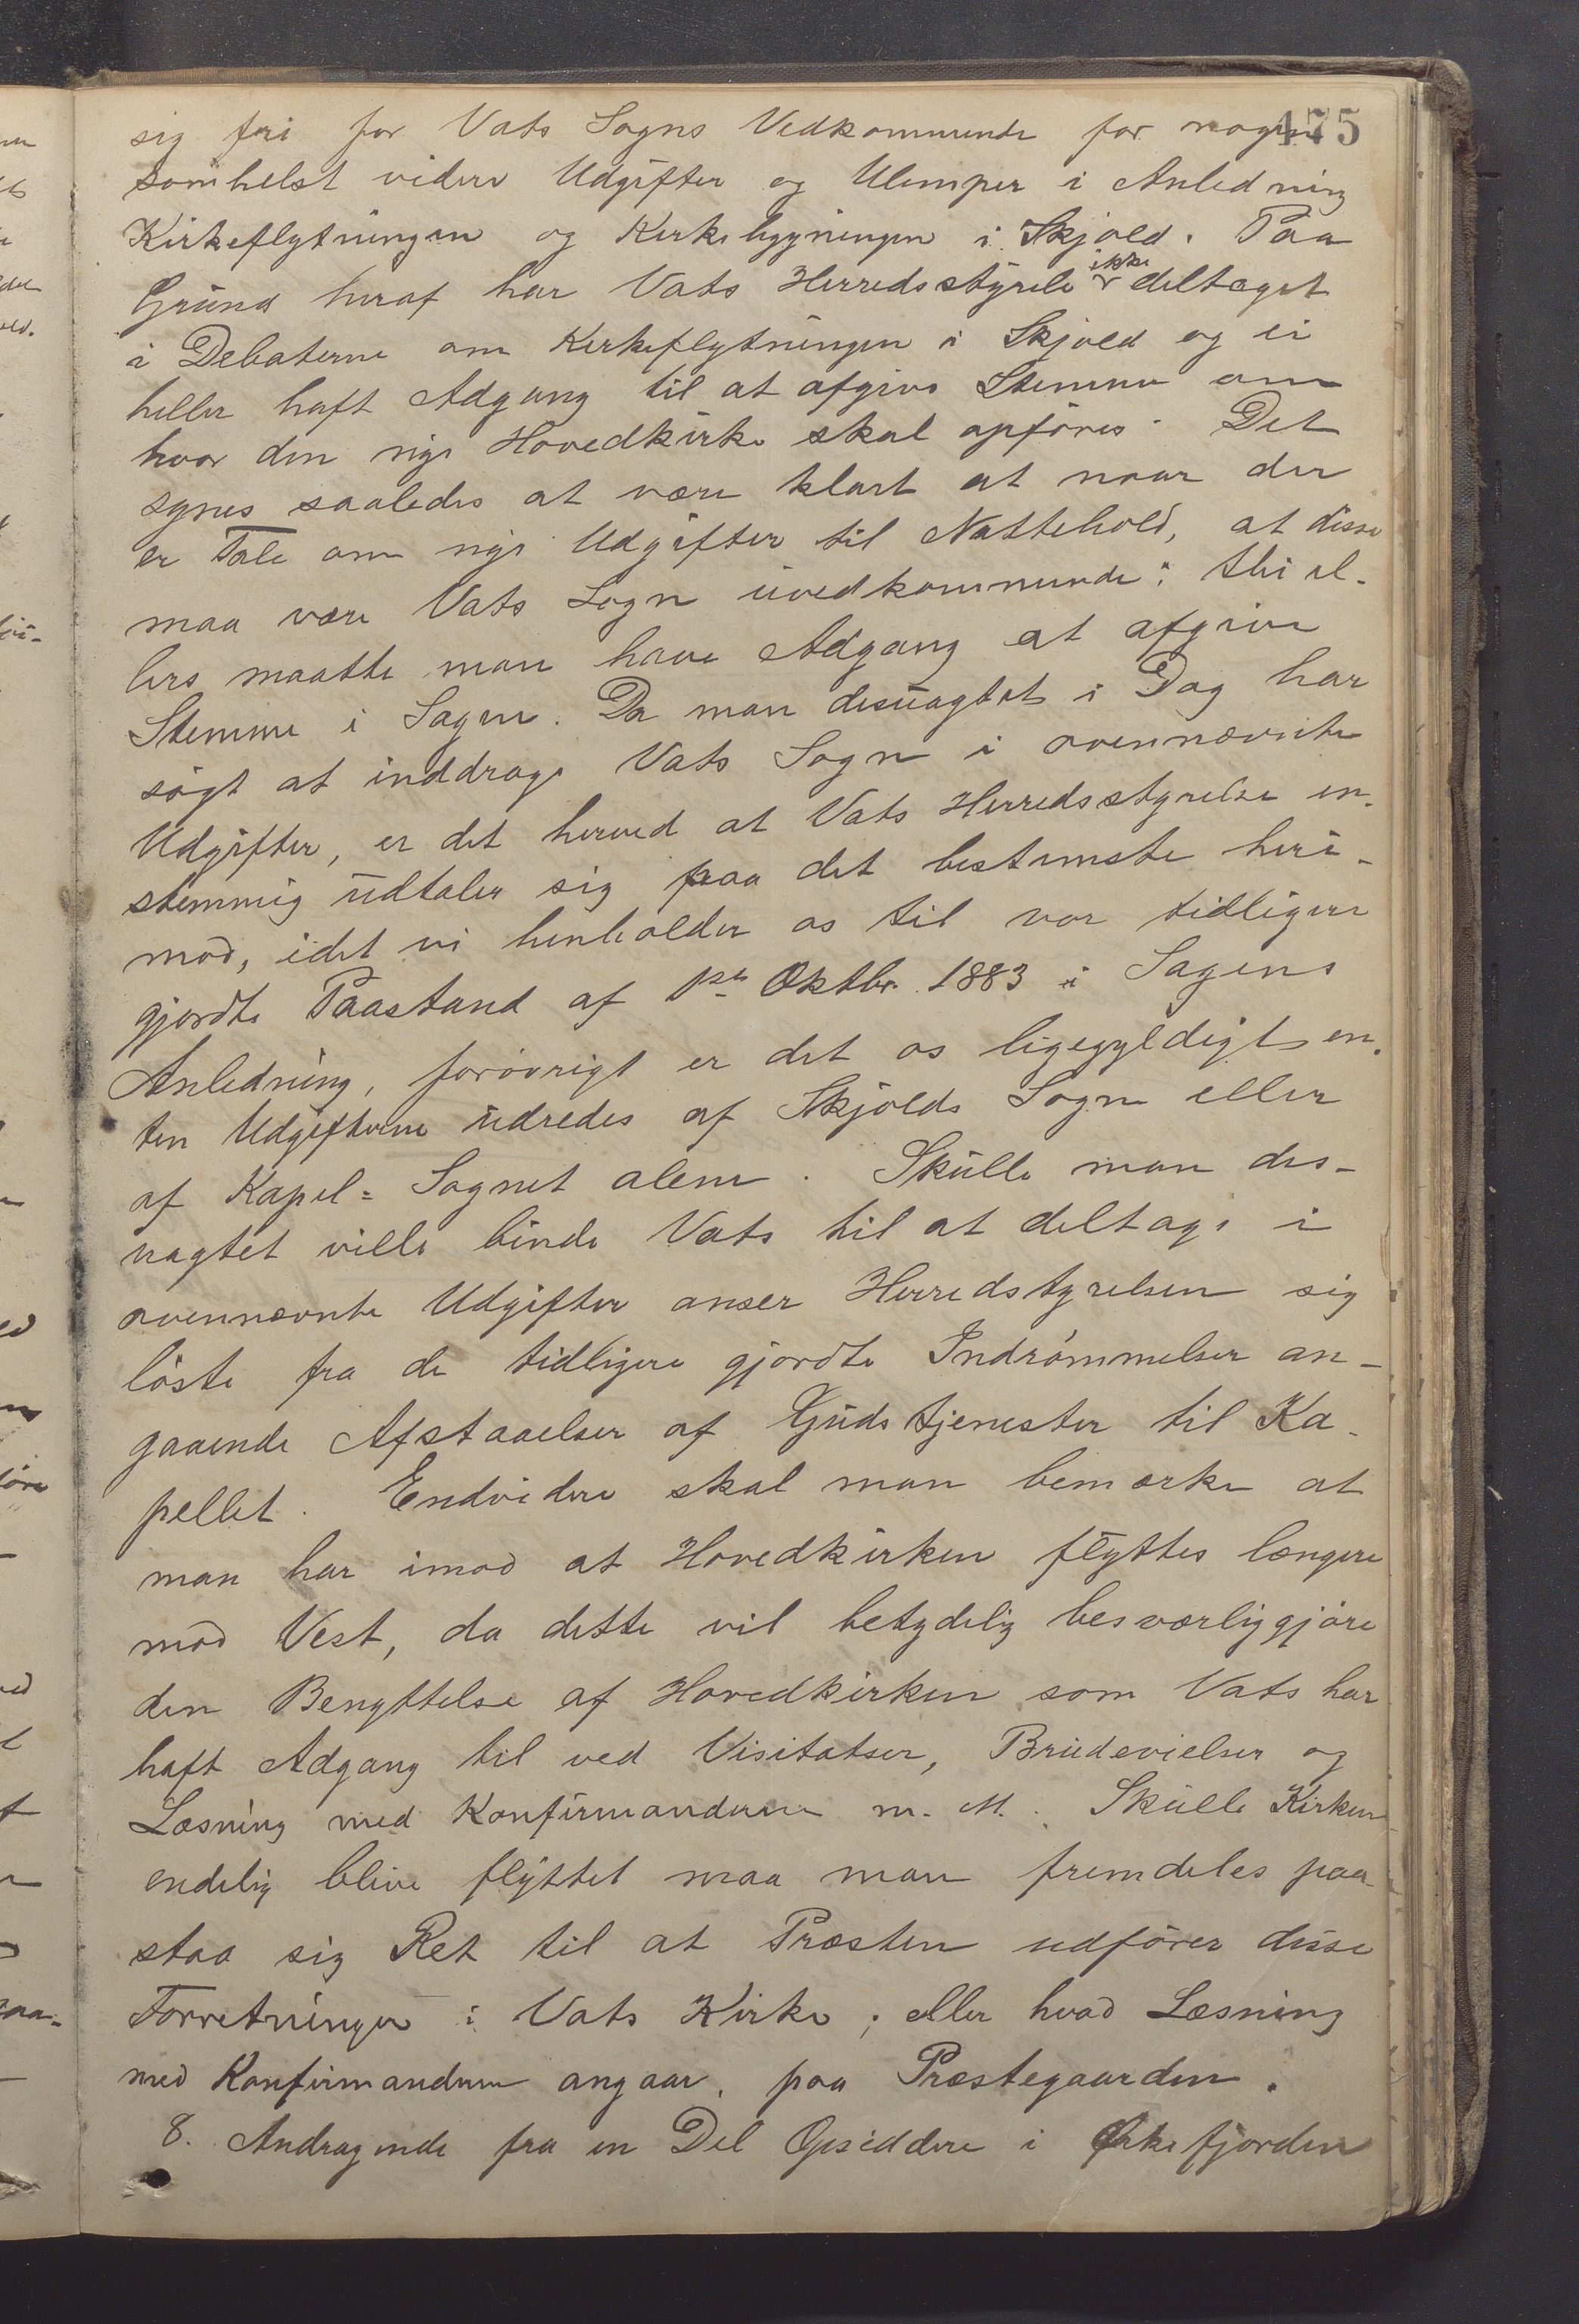 475
sig fri for Vats Sogns Vedkommende for nogen
somhelst videre Udgifter og Ulemper i Anledning
Kirkeflytningen og Kirkebygningen i Skjold. Paa
Grund heraf har Vats Herredsstyrele ikke deltaget
i Debaterne om Kirkeflytningen i Skjold og ei
heller haft Adgang til at afgive Stemme om
hvor den nye Hovedkirke skal opføres. Det
synes saaledes at være klart at naar der
er Tale om nye Udgifter til Nattehold, at disse
maa være Vats Sogn uvedkommende; thi el-
lers maatte man have Adgang at afgive
Stemme i Sagen. Da man desuagtet i Dag har
søgt at inddrage Vats Sogn i ovennævnte
Udgifter, er det herved at Vats Herredsstyrelse en-
stemmig udtaler sig paa det bestemste heri-
mod, idet vi henholder os til vor tidligere
gjordte Paastand af 1ste Oktbr. 1883 i Sagens
Anledning, forøvrigt er det os ligegyldigt en-
ten Udgifterne udredes af Skjolds Sogn eller
af Kapel-Sognet alene. Skulle man des-
uagtet ville binde Vats til at deltage i
ovennævnte Udgifter anser Herredstyrelsen sig
løste fra de tidligere gjordte Indrømmelser an-
gaaende Afstaaelser af Gudstjenester til Ka-
pellet. Endvidere skal man bemærke at
man har imod at Hovedkirken flyttes længere
mod Vest, da dette vil betydelig besværliggjøre
den Benyttelse af Hovedkirken som Vats har
haft Adgang til ved Visitatser, Brudevielser og
Læsning med Konfirmanderne m. M. Skulle Kirken
endelig blive flyttet maa man fremdeles paa-
staa sig Ret til at Præsten udfører disse
Forretninger i Vats Kirke; eller hvad Læsning
med Konfirmanderne angaar, paa Præstegaarden.
8. Andragende fra en Del Opsiddere i Ørkefjorden